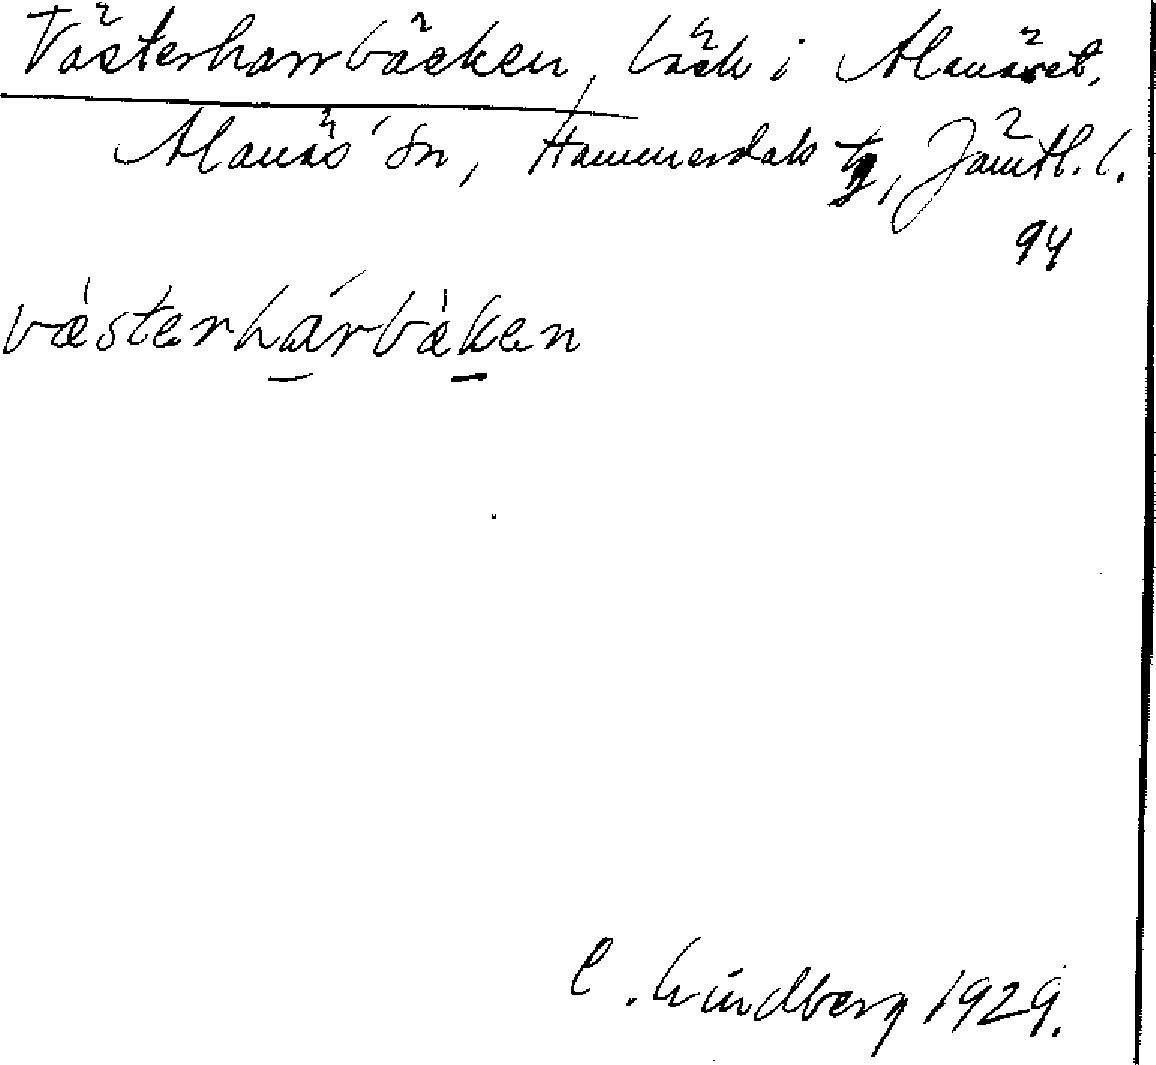 Västerharrbäcken, bäck i Alanäset,
Alanäs sn, Hammerdals tg, Jämtl. l.
94
västerhárbäken
C. Lindberg 1929.